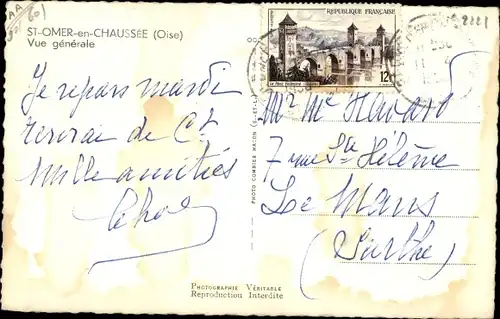 ST-OMER-en-CHAUSSÉE (Oise)
Vue générale
Je repars mardi
de
Mille amitiés
RÉPUBLIQUE FRANÇAISE
12F
Mr Me Havard
7 rue Ste Hélène
Le Mans
(Sarthe)
PHOTO COMBIER MACON (S.-ET-L.)
PHOTOGRAPHIE VÉRITABLE
Reproduction Interdite